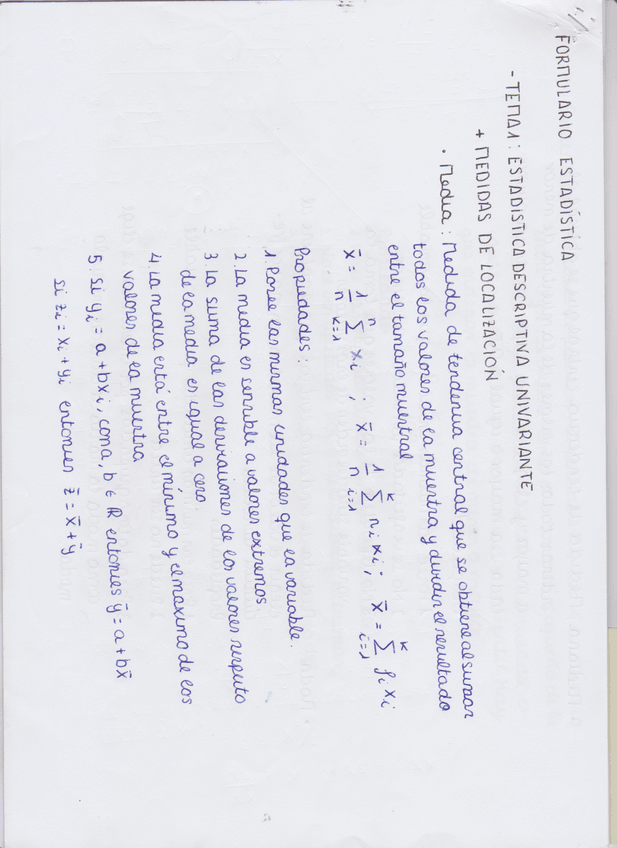 FORMULARIO ESTADÍSTICA
- TEMA1: ESTADISTICA DESCRIPTIVA UNIVARIANTE
+ MEDIDAS DE LOCALIZACIÓN
• Media: Medida de tendencia central que se obtiene al sumar
todos los valores de la muestra y dividir el resultado
entre el tamaño muestral
x̄ = 1/n ∑_{k=1}^{n} xᵢ ; x̄ = 1/n ∑_{i=1}^{k} nᵢxᵢ; x̄ = ∑_{i=1}^{k} fᵢxᵢ
Propiedades:
1. Posee las mismas unidades que la variable.
2. La media es sensible a valores extremos
3. La suma de las desviaciones de los valores respecto
de la media es igual a cero.
4. La media está entre el mínimo y el maximo de los
valores de la muestra
5. Si yᵢ = a + bxᵢ, con a, b ∈ ℝ entonces ȳ = a + bx̄
si zᵢ = xᵢ + yᵢ entonces z̄ = x̄ + ȳ